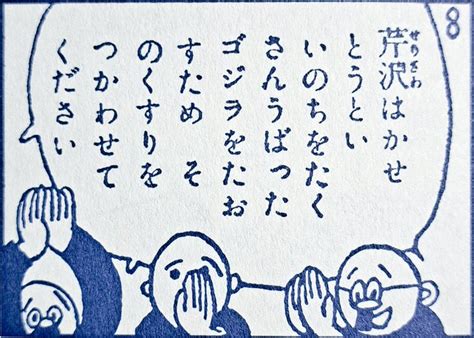 8
芹沢はかせ
せりざわ
とうとい
いのちをたく
さんうばった
ゴジラをたお
すため そ
のくすりを
つかわせて
ください